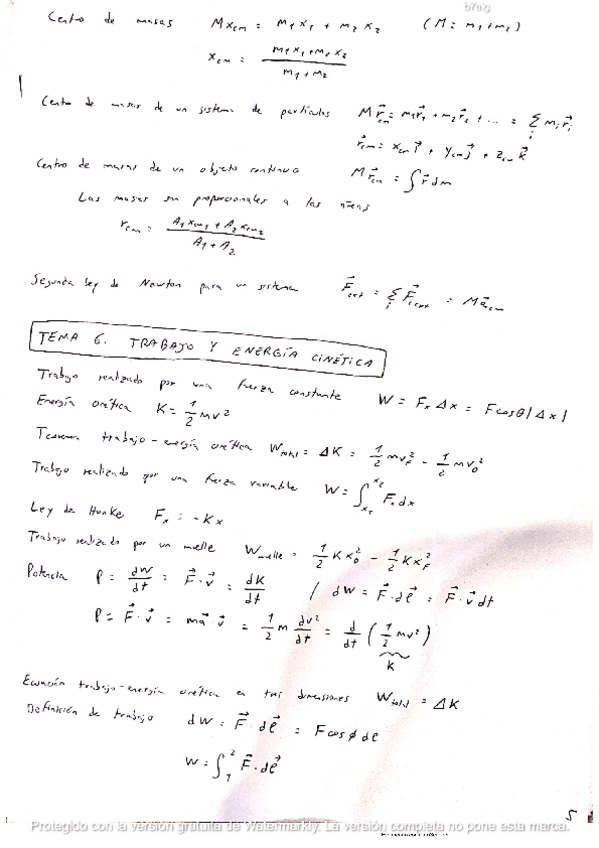 b7aig
Centro de masas Mx_cm = m₁x₁ + m₂x₂ (M = m₁+m₂)
x_cm = (m₁x₁+m₂x₂)/(m₁+m₂)
Centro de masas de un sistema de partículas M r⃗_cm = m₁r⃗₁ + m₂r⃗₂ + ... = Σ_i m_i r⃗_i
r⃗_cm = x_cm i⃗ + y_cm j⃗ + z_cm k⃗
Centro de masas de un objeto continuo M r⃗_cm = ∫ r⃗ dm
Las masas son proporcionales a las áreas
r_cm = (A₁x_cm1 + A₂x_cm2)/(A₁ + A₂)
Segunda ley de Newton para un sistema F⃗_ext = Σ_i F⃗_i ext = M a⃗_cm
TEMA 6. TRABAJO Y ENERGÍA CINÉTICA
Trabajo realizado por una fuerza constante W = F_x Δx = F cosθ |Δx|
Energía cinética K = 1/2 mv²
Teorema trabajo-energía cinética W_total = ΔK = 1/2 mv_F² - 1/2 mv_0²
Trabajo realizado por una fuerza variable W = ∫_x₁^x₂ F_x dx
Ley de Hooke F_x = -Kx
Trabajo realizado por un muelle W_muelle = 1/2 Kx_0² - 1/2 Kx_F²
Potencia P = dW/dt = F⃗·v⃗ = dK/dt / dW = F⃗·dℓ⃗ = F⃗·v⃗ dt
P = F⃗·v⃗ = ma⃗ v⃗ = 1/2 m dv²/dt = d/dt (1/2 mv²)
K
Ecuación trabajo-energía cinética en tres dimensiones W_total = ΔK
Definición de trabajo dW = F⃗·dℓ⃗ = F cosϕ dℓ
W = ∫₁² F⃗·dℓ⃗
5
Protegido con la versión gratuita de Watermarkly. La versión completa no pone esta marca.